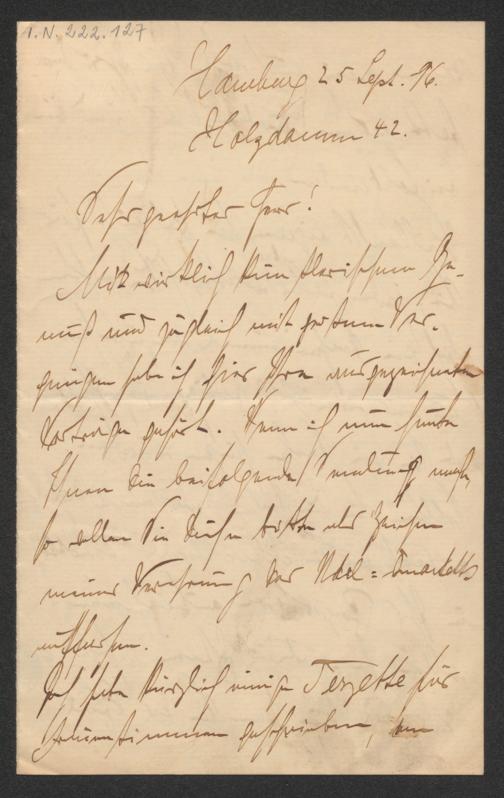 I.N. 222.127
Hamburg 25 Sept. 96.
Holzdamm 42.
Sehr geehrter Herr!
Mit wirklich künstlerischem Ge-
nuß und zugleich mit Ver-
gnügen habe ich hier Ihre ausgezeichneten
Vorträge gehört. Wenn ich nun heute
Ihnen die beifolgende Sendung mache,
so wollen Sie bitte als Zeichen
meiner Verehrung des Udel=Quartetts
auffassen.
Ich habe kürzlich einige Terzette für
geschrieben, von